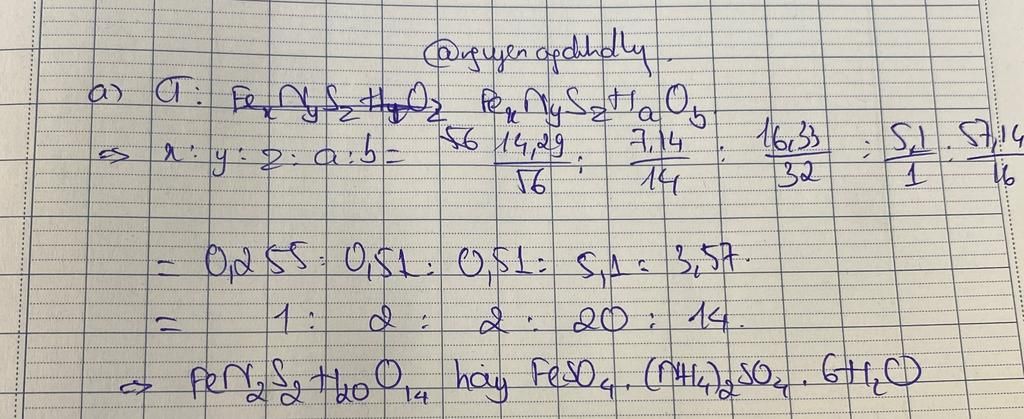 @nguyenngockhdly
a) CT: FexNySzHyO2 FexNySzHaOb
⇒ x : y : z : a : b = 56 14,29/56 : 7,14/14 : 16,33/32 : 5,1/1 : 57,14/16
= 0,255 : 0,51 : 0,51 : 5,1 : 3,57.
= 1 : 2 : 2 : 20 : 14.
⇒ FeN2S2H20O14 hay FeSO4.(NH4)2SO4.6H2O